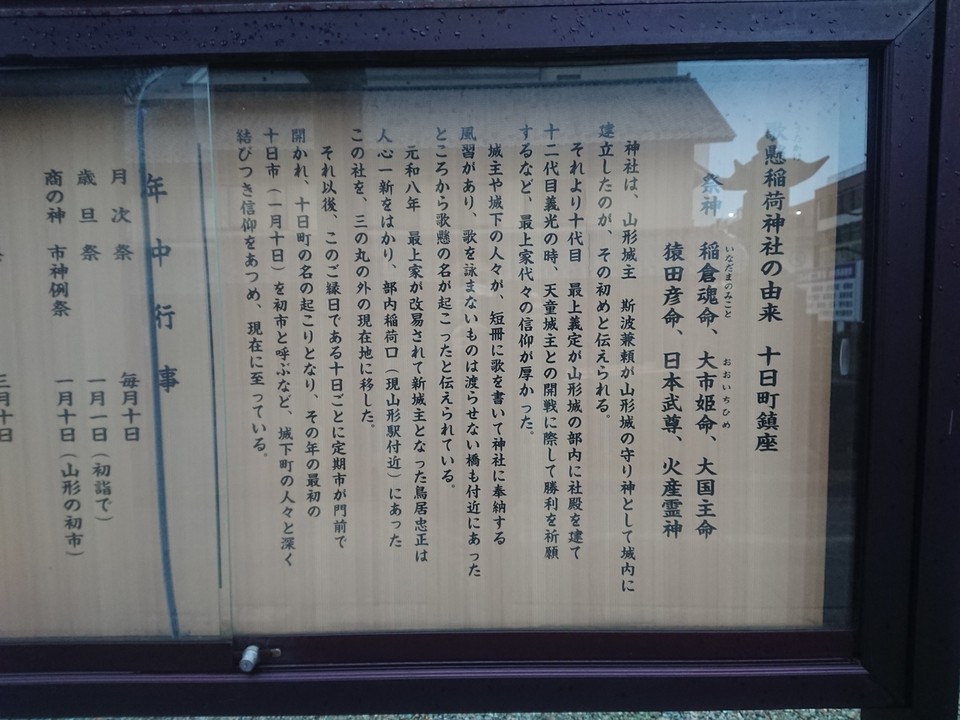 歌懸稲荷神社の由来　十日町鎮座
祭神　稲倉魂命、大市姫命、大国主命
いなだまのみこと
おおいちひめ
猿田彦命、日本武尊、火産霊神
神社は、山形城主　斯波兼頼が山形城の守り神として城内に
建立したのが、その初めと伝えられる。
それより十代目　最上義定が山形城の部内に社殿を建て
十二代目義光の時、天童城主との開戦に際して勝利を祈願
するなど、最上家代々の信仰が厚かった。
城主や城下の人々が、短冊に歌を書いて神社に奉納する
風習があり、歌を詠まないものは渡らせない橋も付近にあった
ところから歌懸の名が起こったと伝えられている。
元和八年　最上家が改易されて新城主となった鳥居忠正は
人心一新をはかり、部内稲荷口（現山形駅付近）にあった
この社を、三の丸の外の現在地に移した。
それ以後、このご縁日である十日ごとに定期市が門前で
開かれ、十日町の名の起こりとなり、その年の最初の
十日市（一月十日）を初市と呼ぶなど、城下町の人々と深く
結びつき信仰をあつめ、現在に至っている。
年中行事
月次祭　毎月十日
歳旦祭　一月一日（初詣で）
商の神　市神例祭　一月十日（山形の初市）
三月十日